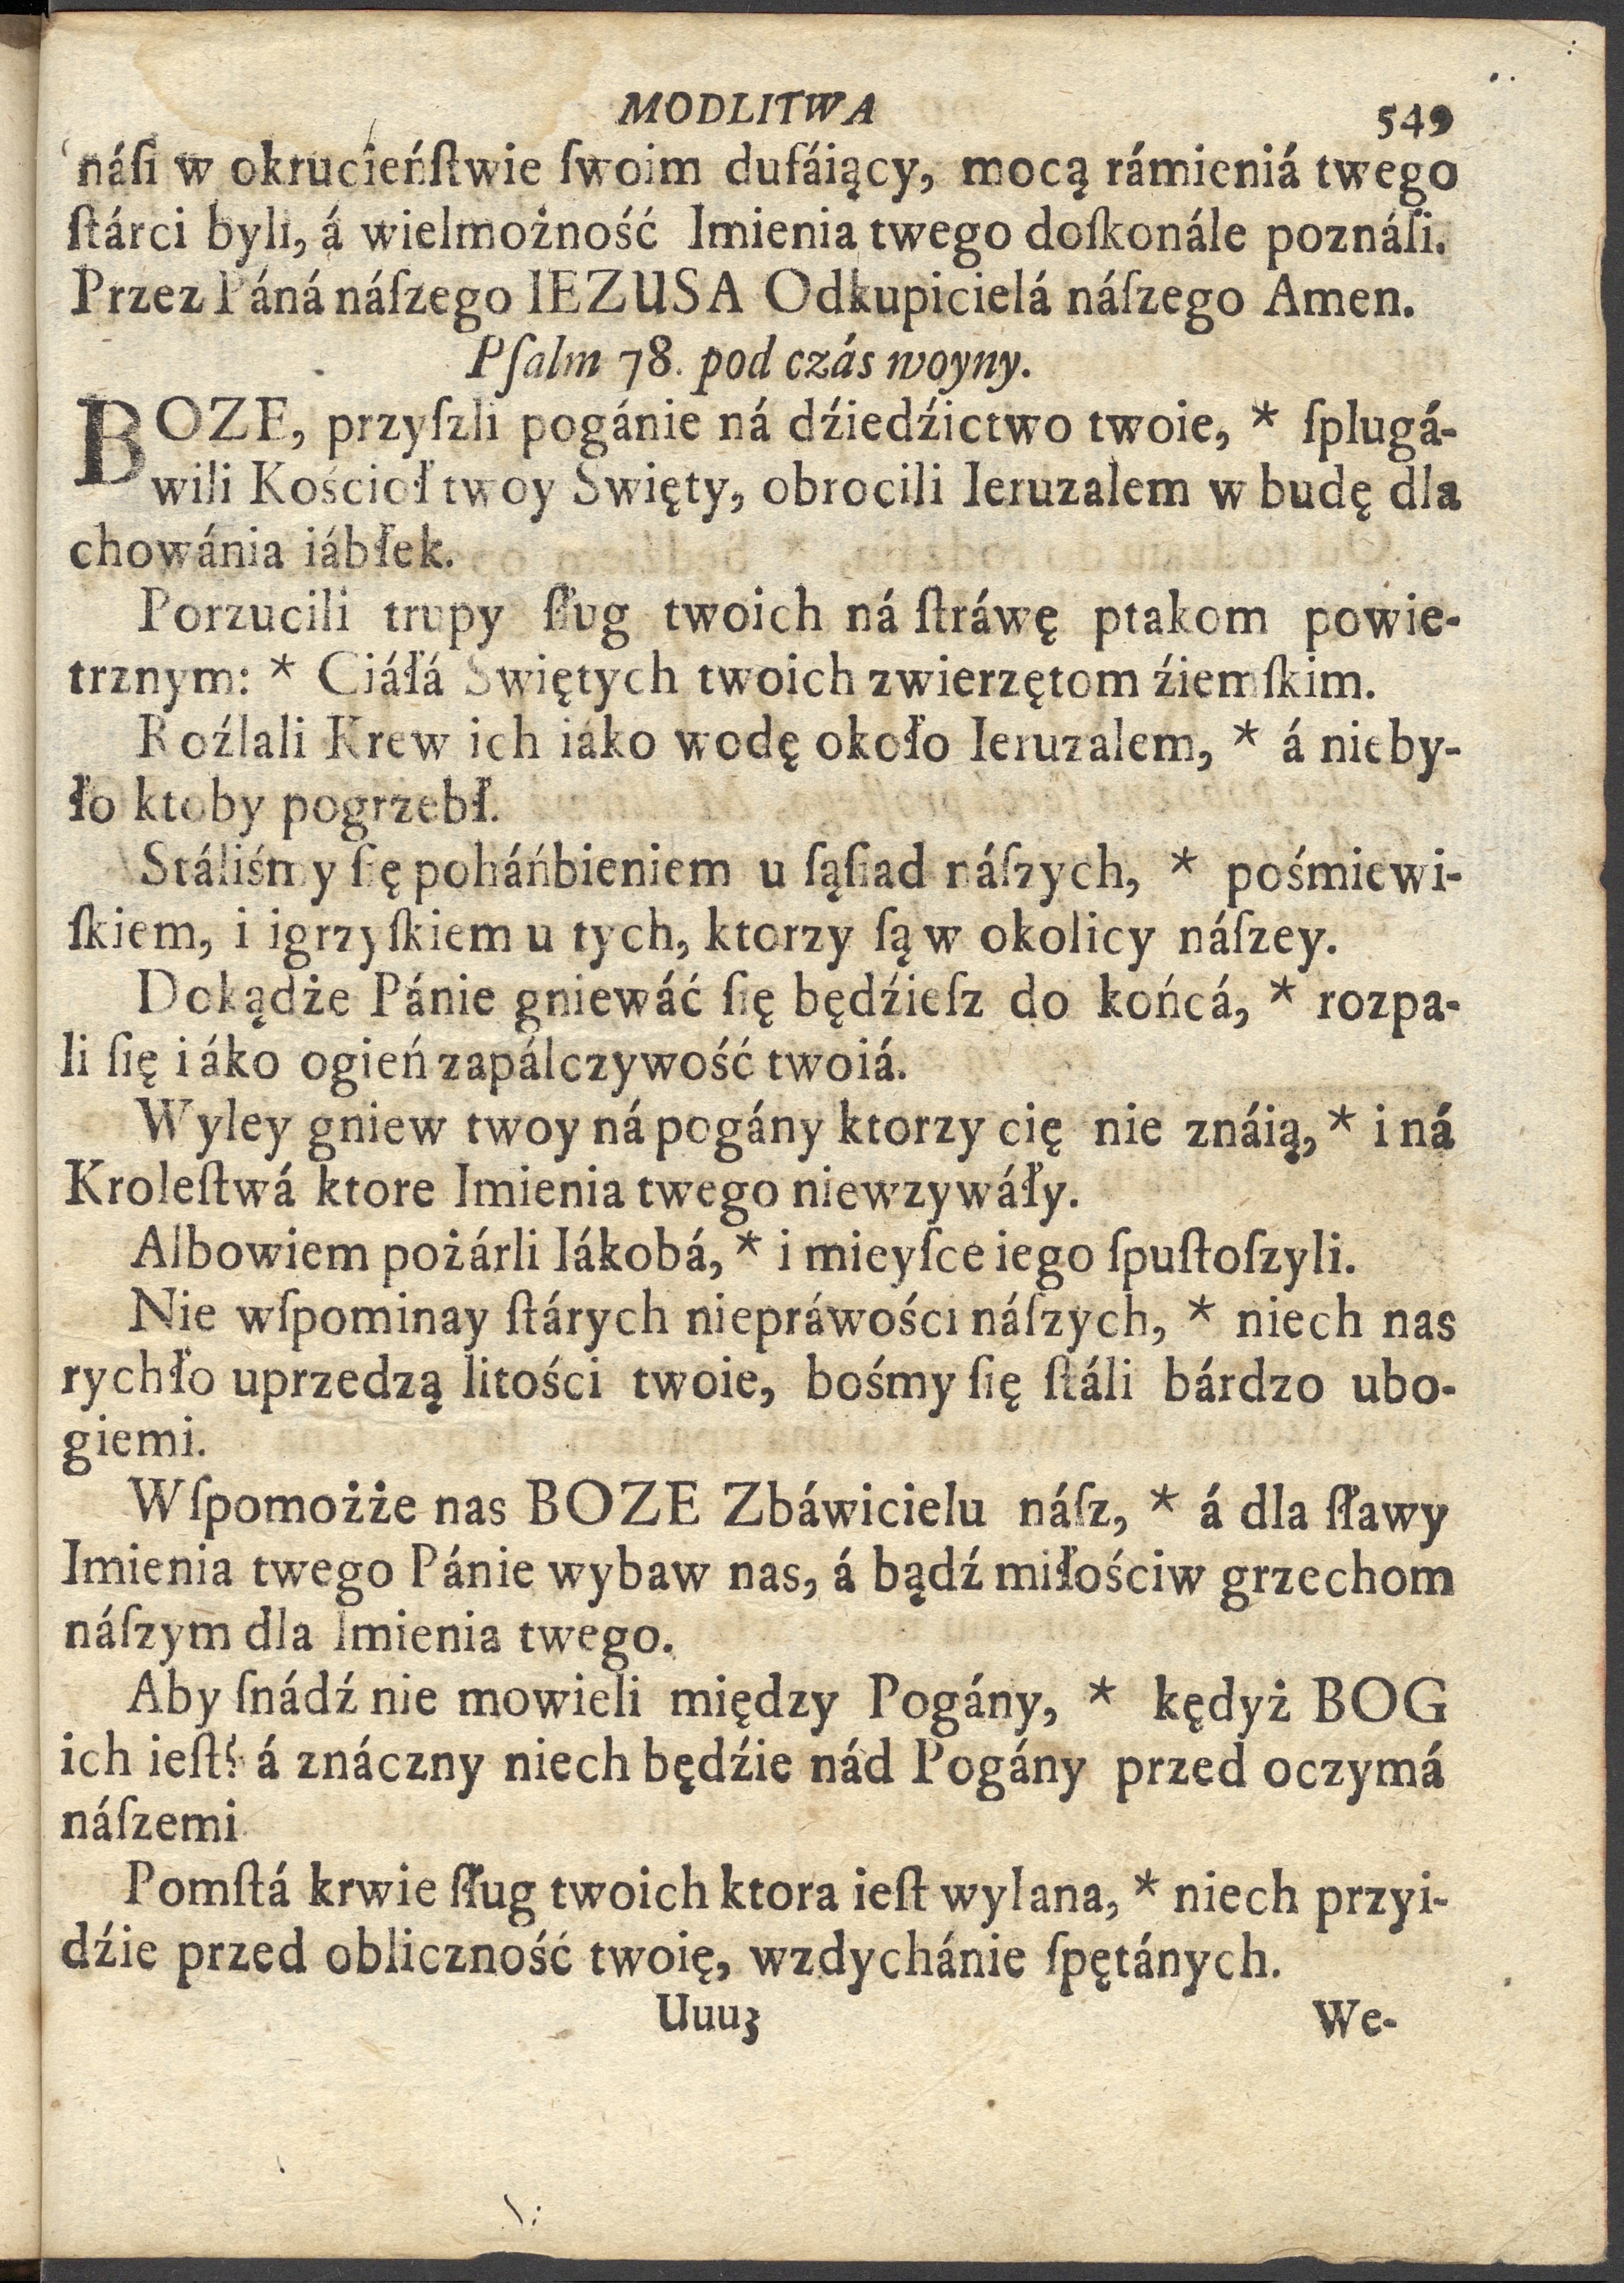 MODLITWA 549
náſi w okrucieńſtwie ſwoim dufáiący, mocą rámieniá twego
ſtárci byli, á wielmożność Imienia twego doſkonále poznáſi.
Przez Páná náſzego IEZUSA Odkupicielá náſzego Amen.
Pſalm 78. pod czás woyny.
BOZE, przyſzli pogánie ná dźiedźictwo twoie, * ſplugá-
wili Kościoł twoy Swięty, obrocili Ieruzalem w budę dla
chowánia iábłek.
Porzucili trupy ſług twoich ná ſtráwę ptakom powie-
trznym: * Ciáłá Swiętych twoich zwierzętom źiemſkim.
Roźlali Krew ich iáko wodę około Ieruzalem, * á nieby-
ło ktoby pogrzebł.
Stáliśmy ſię poháńbieniem u ſąſiad náſzych, * pośmiewi-
ſkiem, i igrzyſkiem u tych, ktorzy ſą w okolicy náſzey.
Dokądże Pánie gniewáć ſię będźieſz do końcá, * rozpa-
li ſię iáko ogień zapálczywość twoiá.
Wyley gniew twoy ná pogány ktorzy cię nie znáią, * i ná
Kroleſtwá ktore Imienia twego niewzywáły.
Albowiem pożárli Iákobá, * i mieyſce iego ſpuſtoſzyli.
Nie wſpominay ſtárych niepráwości náſzych, * niech nas
rychło uprzedzą litości twoie, bośmy ſię ſtáli bárdzo ubo-
giemi.
Wſpomożże nas BOZE Zbáwicielu náſz, * á dla ſławy
Imienia twego Pánie wybaw nas, á bądź miłościw grzechom
náſzym dla Imienia twego.
Aby ſnádź nie mowieli między Pogány, * kędyż BOG
ich ieſt? á znáczny niech będźie nád Pogány przed oczymá
náſzemi
Pomſtá krwie ſług twoich ktora ieſt wylana, * niech przyi-
dźie przed obliczność twoię, wzdychánie ſpętánych.
Uuu3 We-